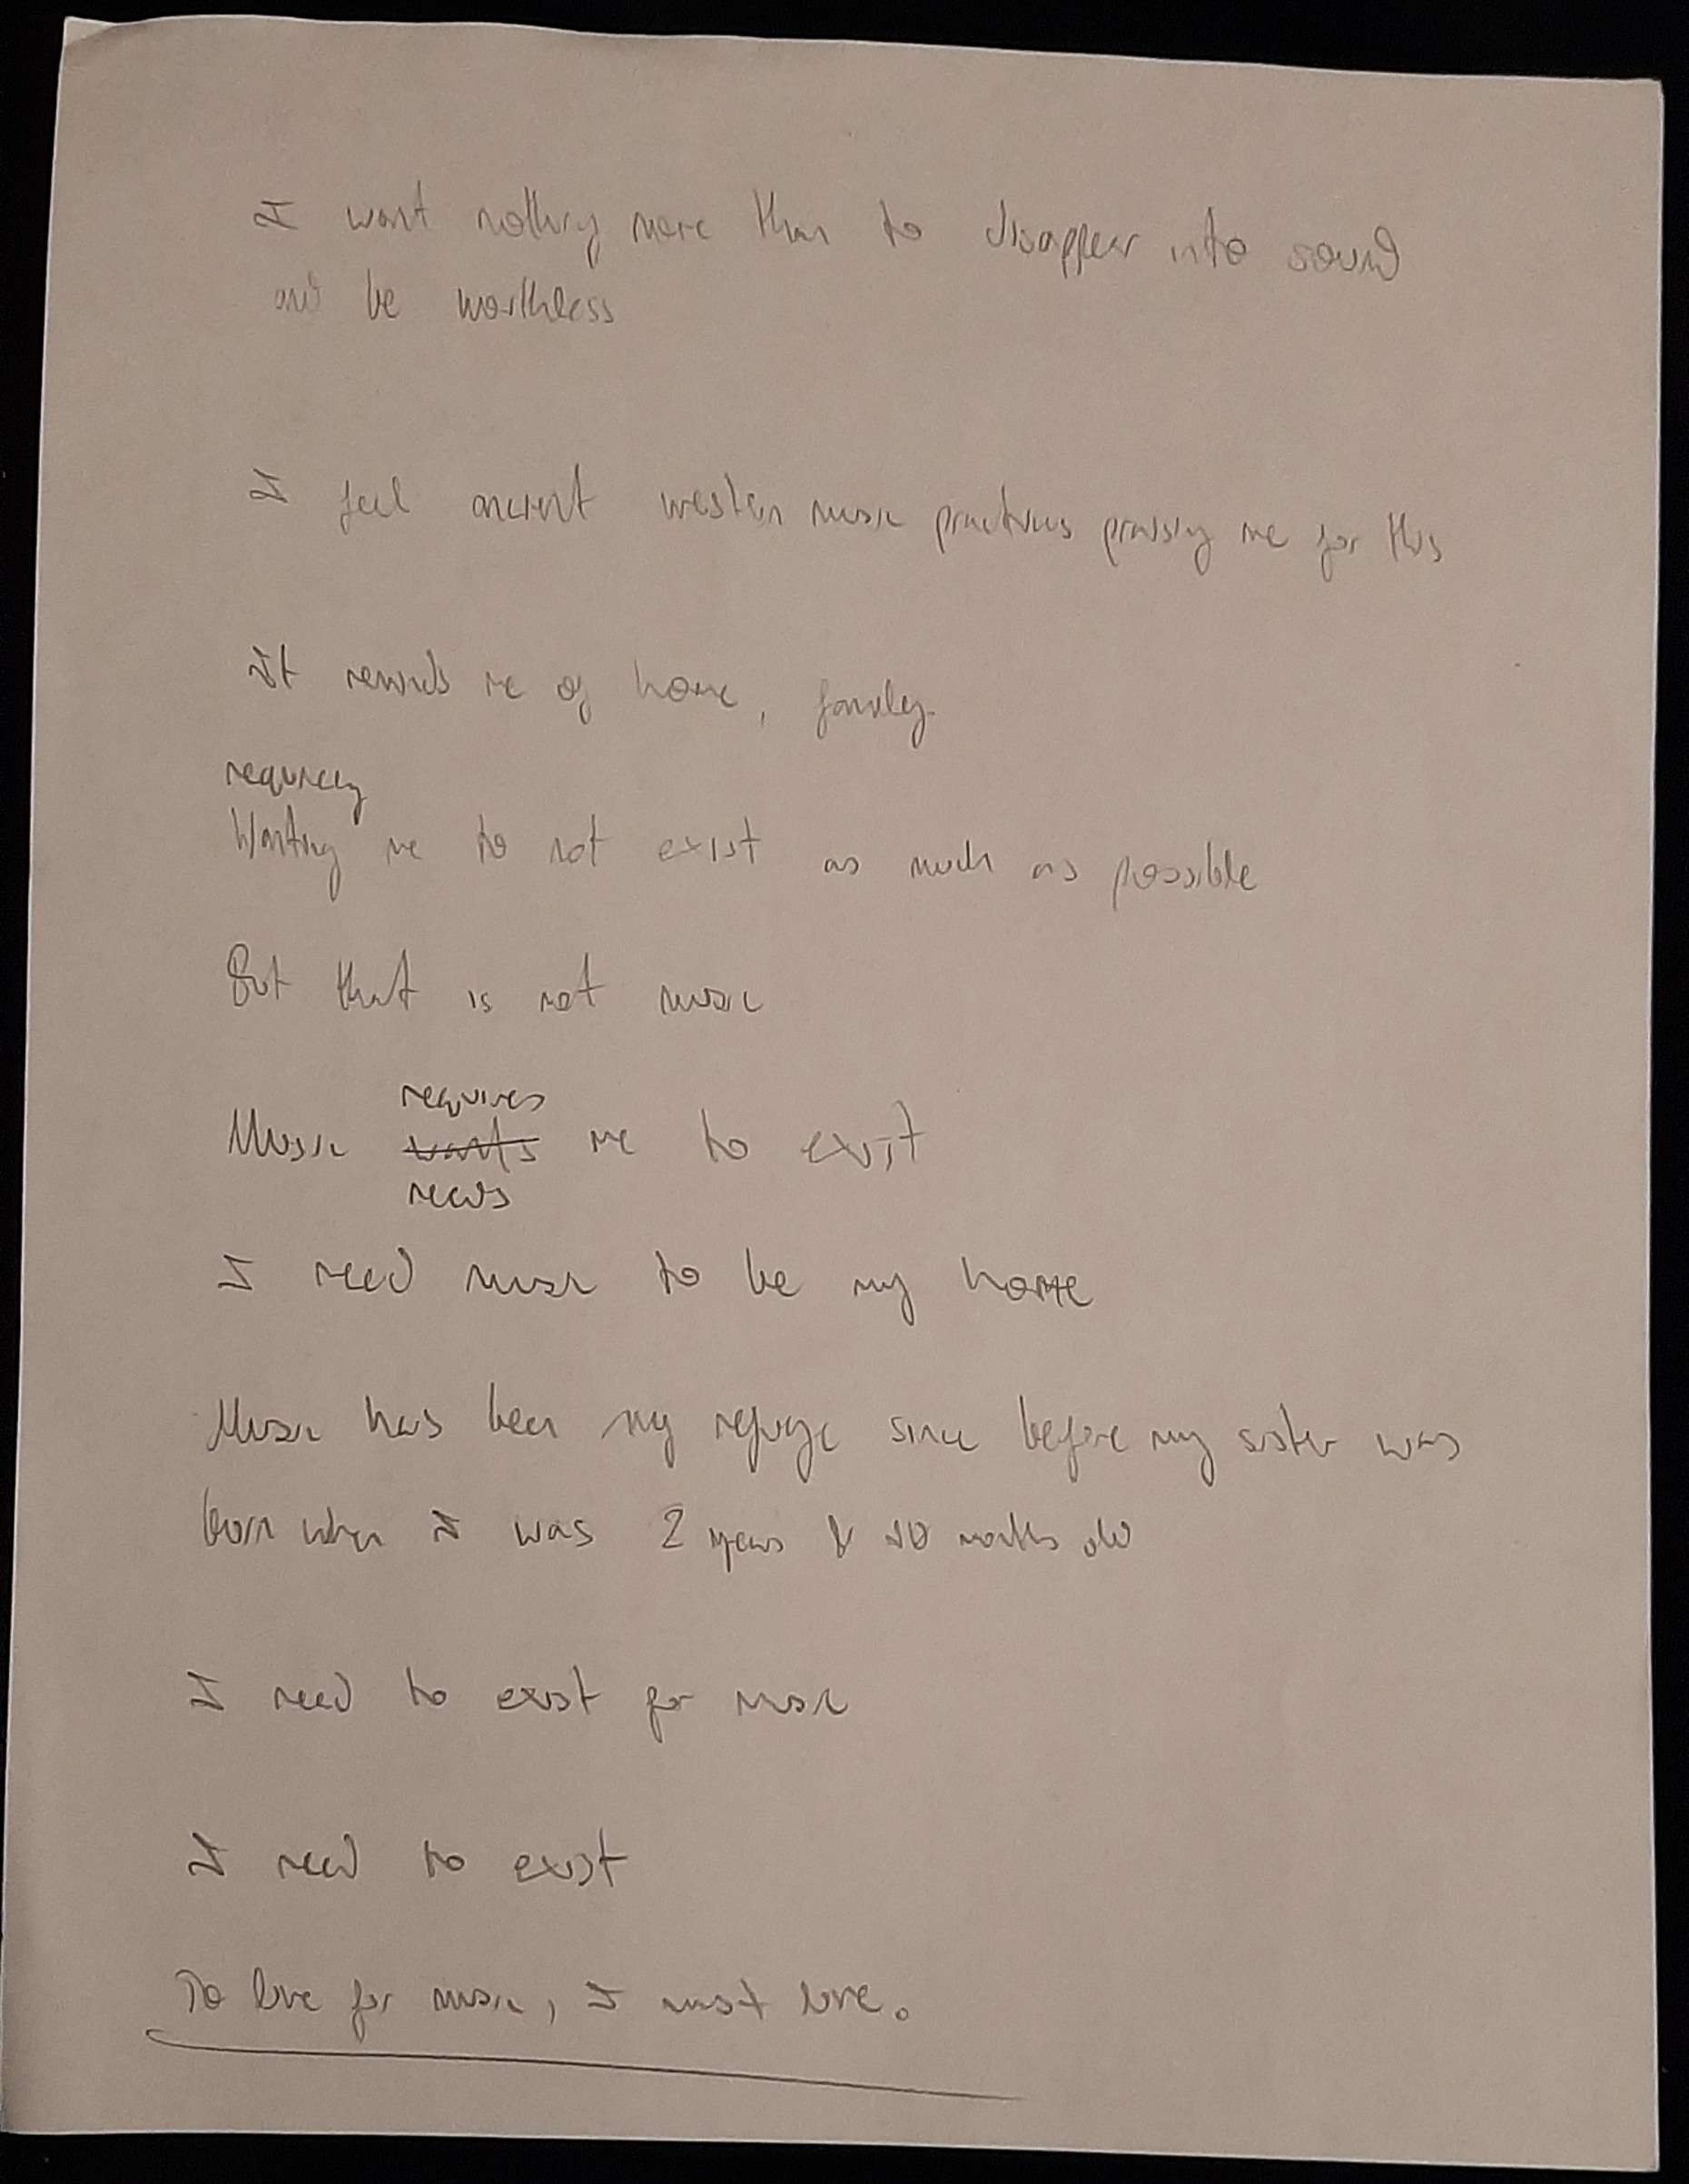 I want nothing more than to disappear into sound
and be worthless
I feel ancient western music practices praising me for this
It reminds me of home, family
requiring
Wanting me to not exist as much as possible
But that is not music
requires
Music wants me to exist
needs
I need music to be my home
Music has been my refuge since before my sister was
born when I was 2 years & 10 months old
I need to exist for music
I need to exist
To live for music, I must live.